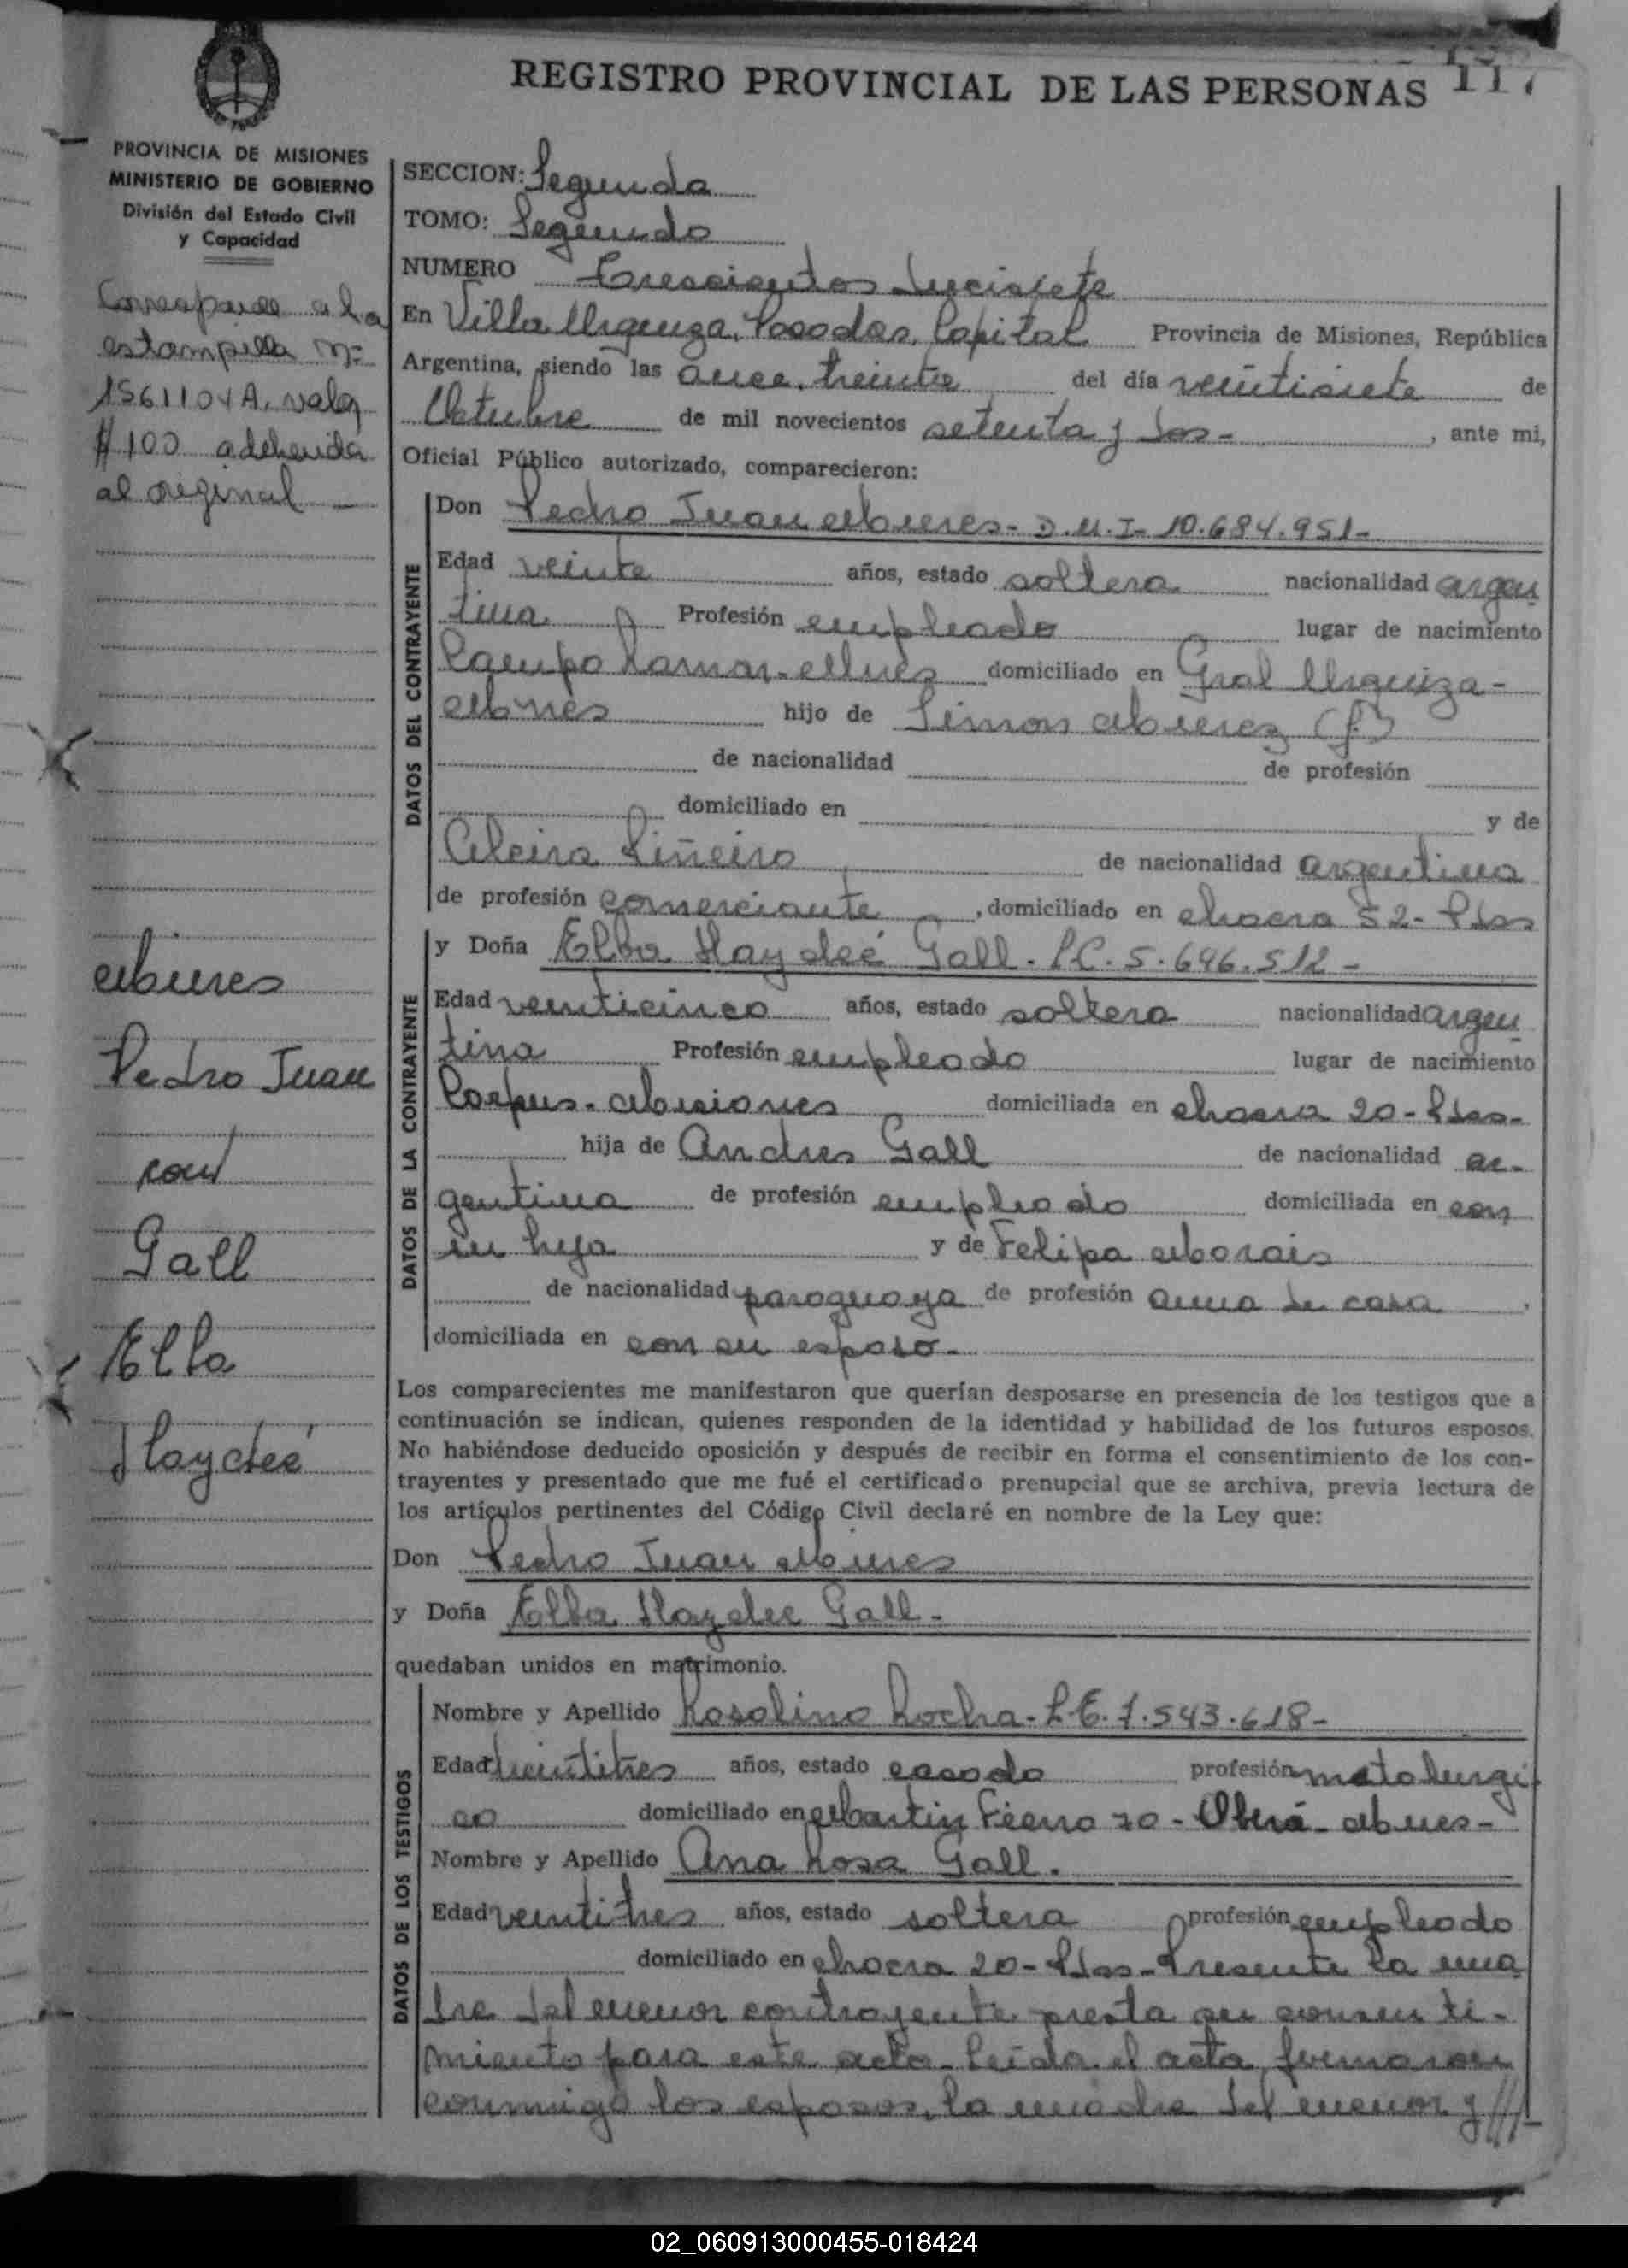 REGISTRO PROVINCIAL DE LAS PERSONAS 117
PROVINCIA DE MISIONES
MINISTERIO DE GOBIERNO
División del Estado Civil
y Capacidad
Corresponde a la
estampilla Nº
1561104A, valor
$ 100 adherida
al original
SECCION: Segunda
TOMO: Segundo
NUMERO Trescientos diecisiete
En Villa Urquiza, Posadas, Capital Provincia de Misiones, República
Argentina, siendo las once, treinta del día veintisiete de
Octubre de mil novecientos setenta y dos - , ante mi,
Oficial Público autorizado, comparecieron:
DATOS DEL CONTRAYENTE
Don Pedro Juan - D.N.I- 10.684.951-
Edad veinte años, estado soltero nacionalidad argen
tina Profesión empleado lugar de nacimiento
Campo domiciliado en Gral Urquiza -
Mnes hijo de Simon (f)
de nacionalidad de profesión
domiciliado en y de
Alcira Piñeiro de nacionalidad argentina
de profesión comerciante , domiciliado en chacra 52- Pdas
DATOS DE LA CONTRAYENTE
y Doña Elba Haydeé Gall - LC. 5.696.512 -
Edad veinticinco años, estado soltera nacionalidad argen
tina Profesión empleada lugar de nacimiento
Corpus - Misiones domiciliada en chacra 20 - Pdas -
hija de Andres Gall de nacionalidad ar-
gentina de profesión empleado domiciliada en con
su hija y de Felipa Morais
de nacionalidad paraguaya de profesión ama de casa ,
domiciliada en con su esposo -
Pedro Juan
con
Gall
Elba
Haydeé
Los comparecientes me manifestaron que querían desposarse en presencia de los testigos que a
continuación se indican, quienes responden de la identidad y habilidad de los futuros esposos.
No habiéndose deducido oposición y después de recibir en forma el consentimiento de los con-
trayentes y presentado que me fué el certificado prenupcial que se archiva, previa lectura de
los artículos pertinentes del Código Civil declaré en nombre de la Ley que:
Don Pedro Juan
y Doña Elba Haydee Gall -
quedaban unidos en matrimonio.
DATOS DE LOS TESTIGOS
Nombre y Apellido Rosalino Rocha - L.E. 7.543.618 -
Edad treintitres años, estado casado profesión metalurgi
co domiciliado en Martin Fierro 70 - Oberá - Mnes -
Nombre y Apellido Ana Rosa Gall.
Edad veintitres años, estado soltera profesión empleada
domiciliado en chacra 20 - Pdas - Presente la ma
dre del menor contrayente presta su consenti-
miento para este acto - Leida el acta, firmaron
conmigo los esposos, la madre del menor y ///-
02_060913000455-018424